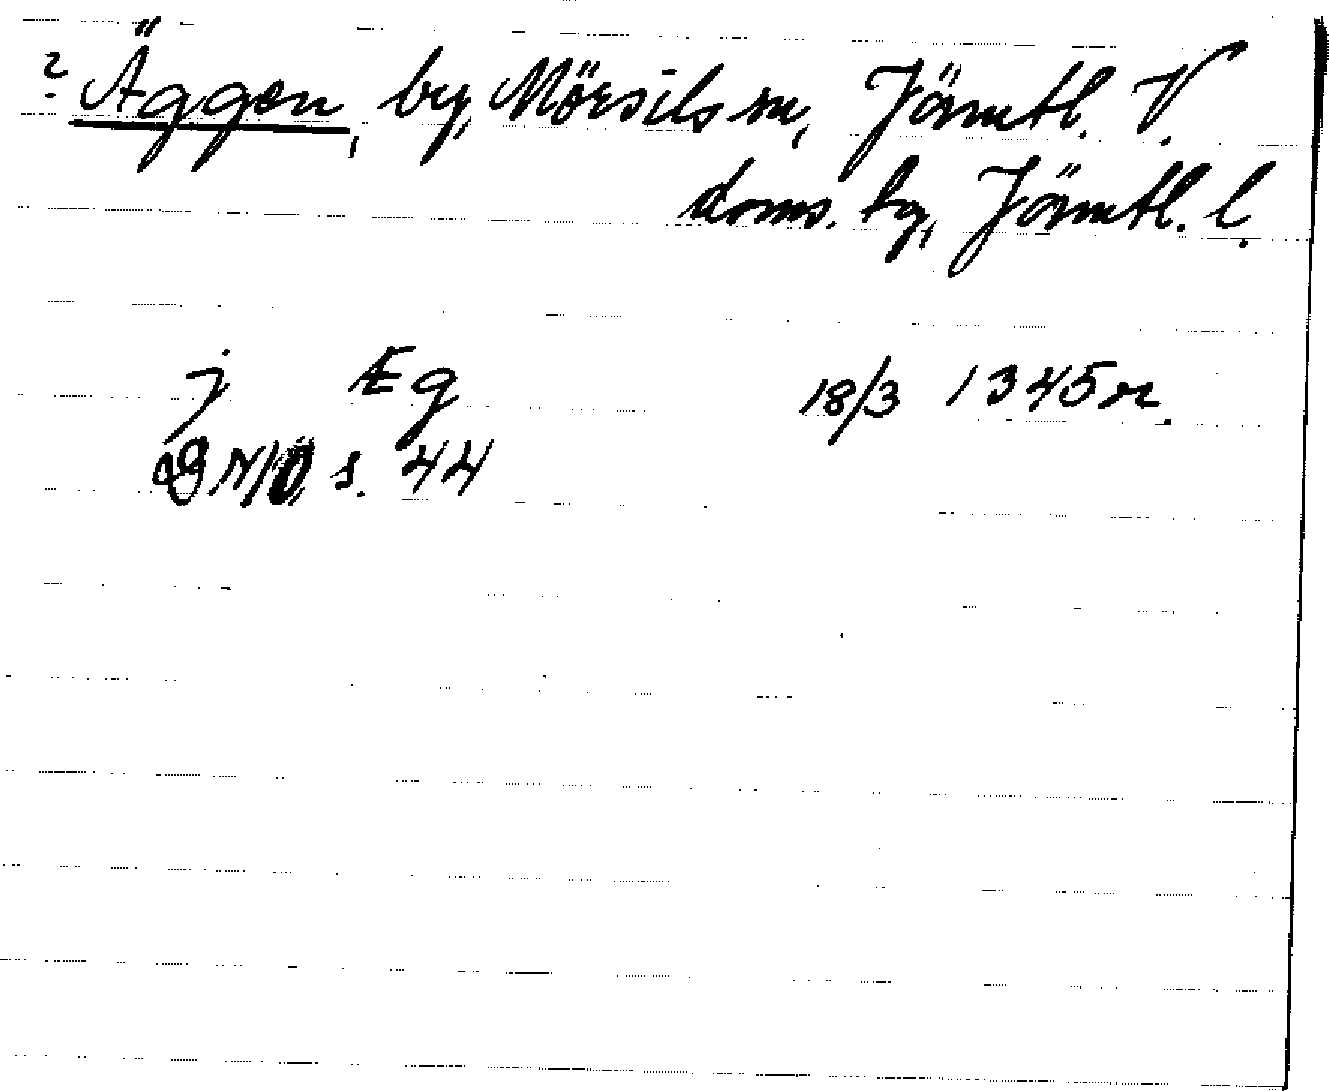 ? Äggen, by, Mörsils sn, Jämtl. V.
doms. tg, Jämtl. l.
j Æg 18/3 1345 r.
s. 44